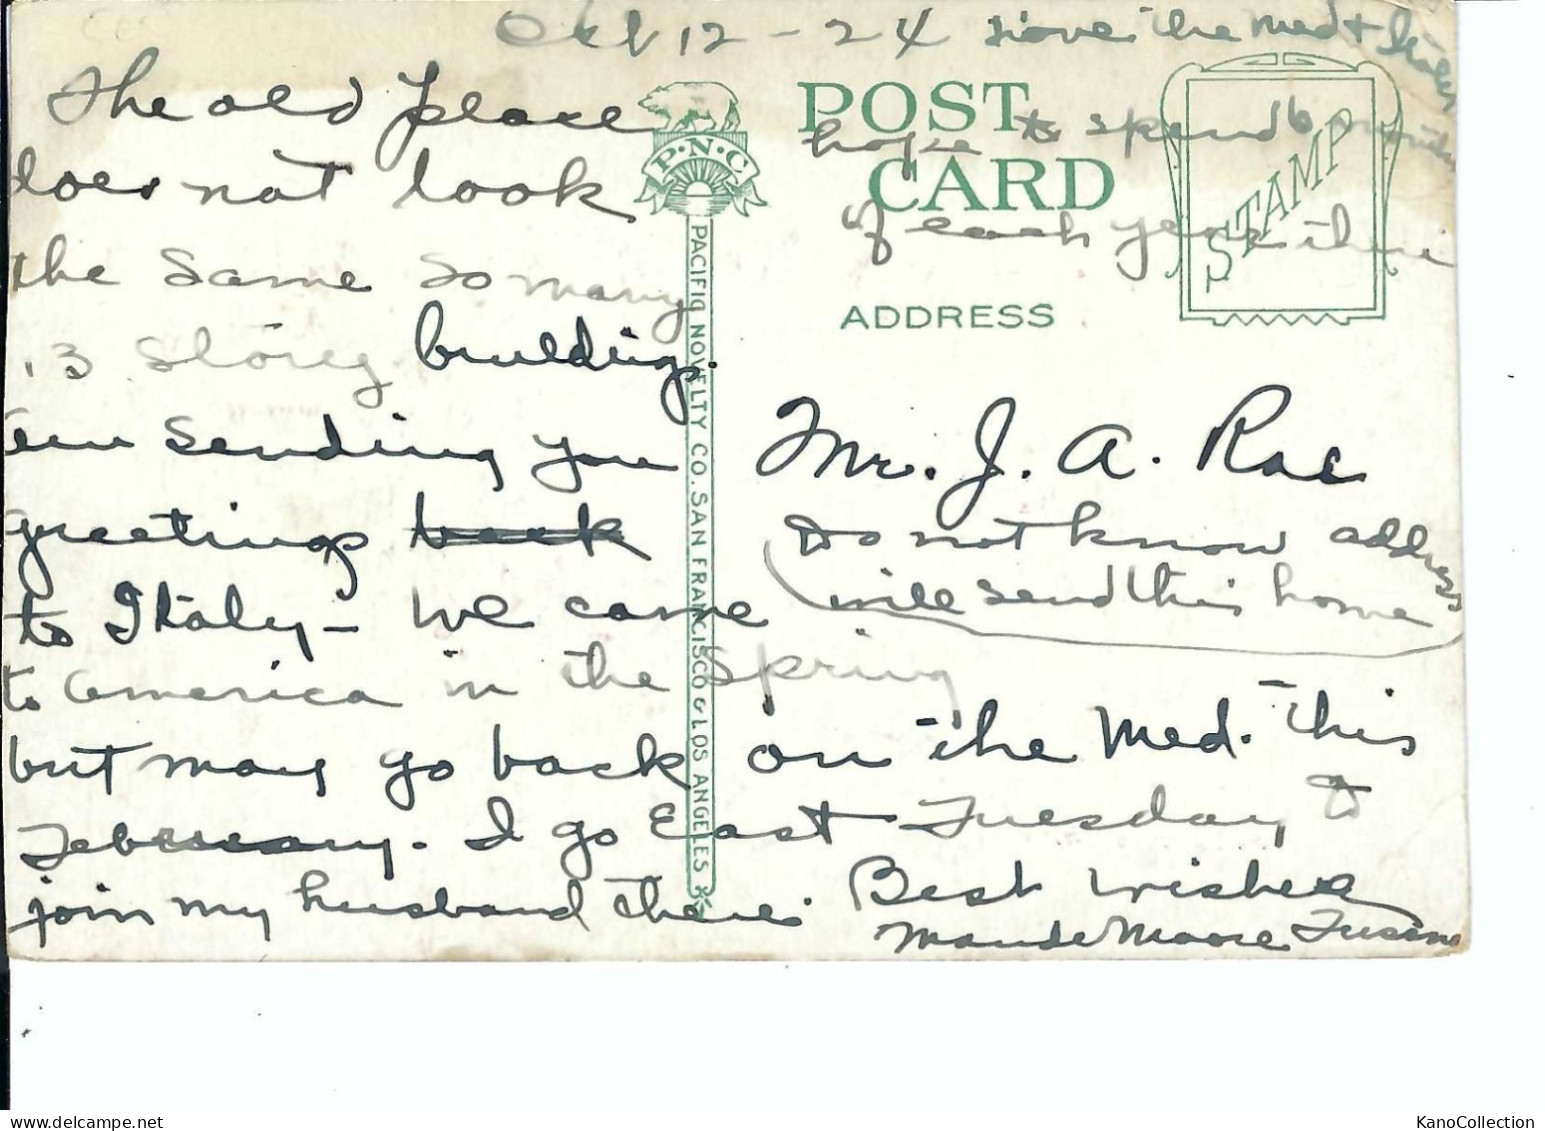 Oct 12 - 24 I love the Med & Italy
hope to spend 6 months
of each year there
The old place
does not look
the same so many
13 storey buildings.
Am sending you
greetings back
to Italy - We came
to America in the Spring
but may go back on the Med. this
February. I go East Tuesday to
join my husband there.
Best wishes
Maude Moore
POST
CARD
STAMP
ADDRESS
P·N·C
PACIFIC NOVELTY CO. SAN FRANCISCO & LOS ANGELES
Mr. J. A. Rae
Do not know address
will send this home
KanoCollection